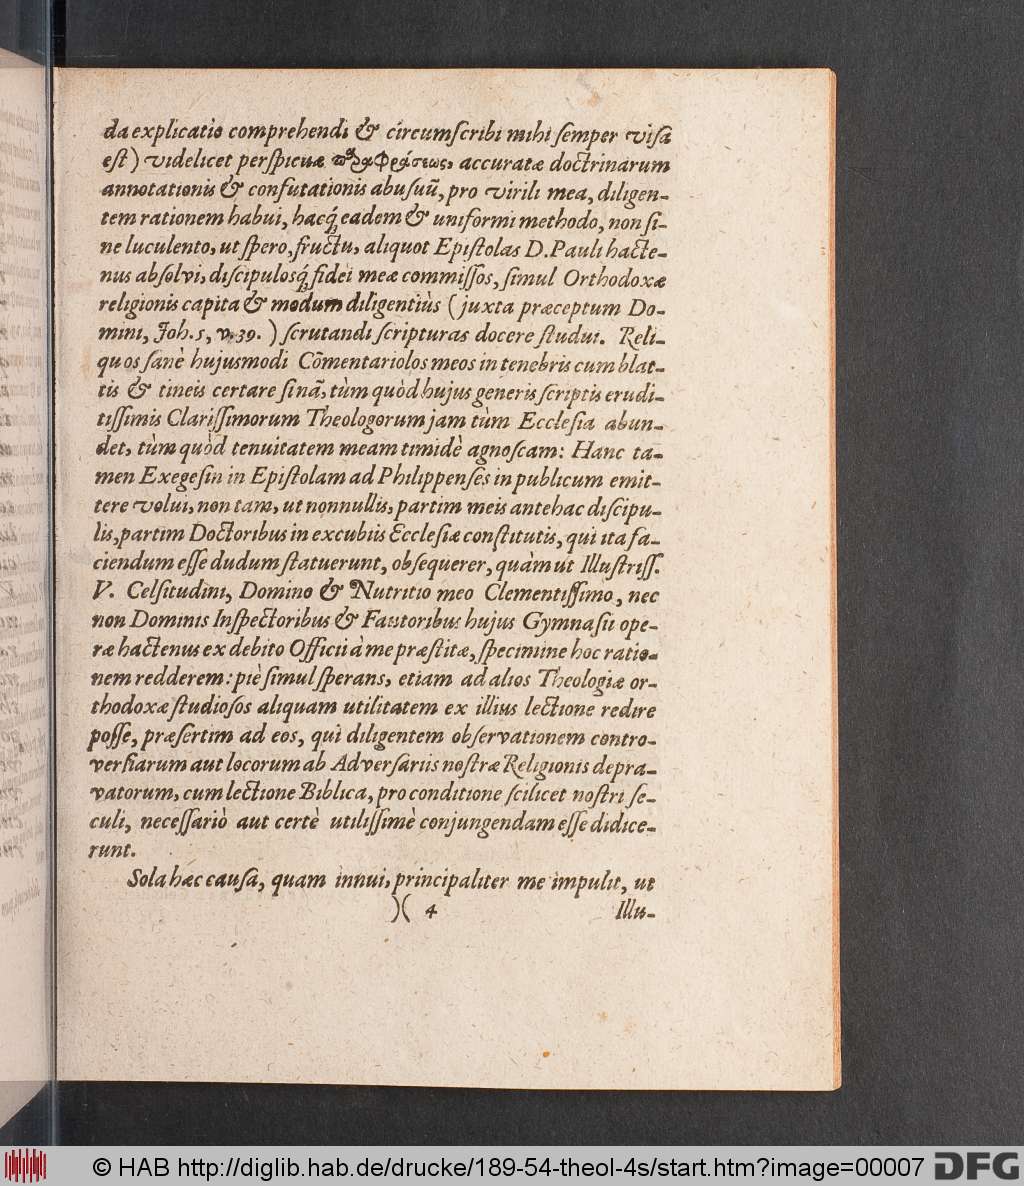 da explicatio comprehendi & circumſcribi mihi ſemper viſa
eſt) videlicet perſpicuæ παραφράσεως, accuratæ doctrinarum
annotationis & confutationis abuſuũ, pro virili mea, diligen-
tem rationem habui, hacq́; eadem & uniformi methodo, non ſi-
ne luculento, ut ſpero, fructu, aliquot Epiſtolas D. Pauli hacte-
nus abſolvi, diſcipulosq́; fidei meæ commiſſos, ſimul Orthodoxæ
religionis capita & modum diligentiùs (juxta præceptum Do-
mini, Joh. 5, v. 39.) ſcrutandi ſcripturas docere ſtudui. Reli-
quos ſanè hujusmodi Cõmentariolos meos in tenebris cum blat-
tis & tineis certare ſinã, tùm quòd hujus generis ſcriptis erudi-
tiſſimis Clariſſimorum Theologorum jam tùm Eccleſia abun-
det, tùm quòd tenuitatem meam timidè agnoſcam: Hanc ta-
men Exegeſin in Epiſtolam ad Philippenſes in publicum emit-
tere volui, non tam, ut nonnullis, partim meis antehac diſcipu-
lis, partim Doctoribus in excubiis Eccleſiæ conſtitutis, qui ita fa-
ciendum eſſe dudum ſtatuerunt, obſequerer, quàm ut Illuſtriſſ.
V. Celſitudini, Domino & Nutritio meo Clementiſſimo, nec
non Dominis Inſpectoribus & Fautoribus hujus Gymnaſii ope-
ræ hactenus ex debito Officii à me præſtitæ, ſpecimine hoc ratio-
nem redderem: piè ſimul ſperans, etiam ad alios Theologiæ or-
thodoxæ ſtudioſos aliquam utilitatem ex illius lectione redire
poſſe, præſertim ad eos, qui diligentem obſervationem contro-
verſiarum aut locorum ab Adverſariis noſtræ Religionis depra-
vatorum, cum lectione Biblica, pro conditione ſcilicet noſtri ſe-
culi, neceſſariò aut certè utiliſſimè conjungendam eſſe didice-
runt.
Sola hæc cauſa, quam innui, principaliter me impulit, ut
)( 4 Illu-
© HAB http://diglib.hab.de/drucke/189-54-theol-4s/start.htm?image=00007 DFG